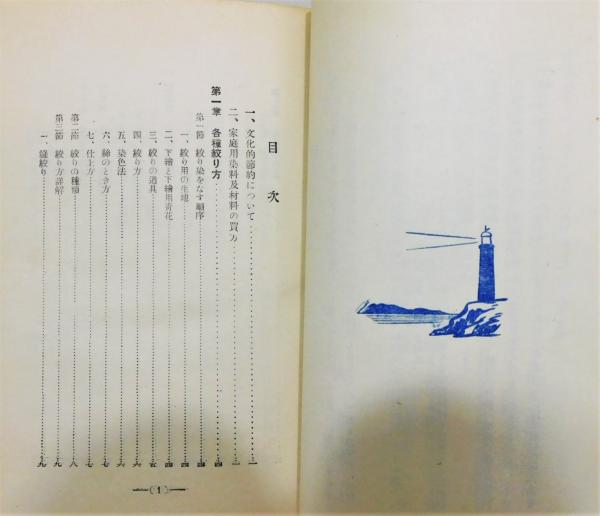 目次
一、文化的節約について……一
二、家庭用染料及材料の買方……一
第一章 各種絞り方……四
第一節 絞り染をなす順序……四
一、絞り用の生地……四
二、下繪と下繪用靑花……四
三、絞りの道具……五
四、絞り方……六
五、染色法……六
六、絲のとき方……七
七、仕上方……七
第二節 絞りの種類……八
第三節 絞り方詳解……九
一、縫絞り……九
(1)